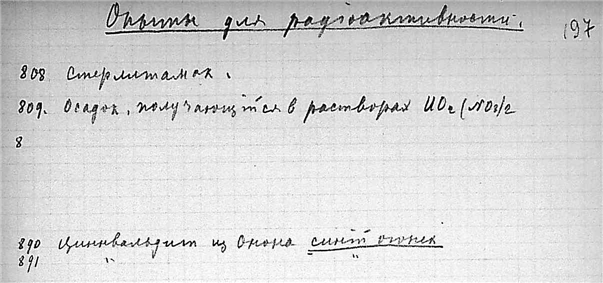 Опыты для радіоактивности.
197
808 Стерлитамак.
809. Осадок, получающійся в растворах UO2(NO3)2
8
890 Циннвальдит из Онона синій огонек
891 " "